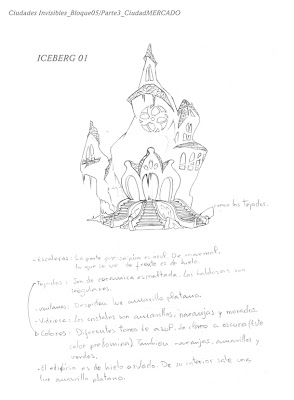 Ciudades Invisibles_Bloque05/Parte3_CiudadMERCADO
ICEBERG 01
como los tejados.
- Escaleras: La parte que se pisa es azul. De marmol,
lo que se ve de frente es de hielo.
- Tejados: Son de ceramica esmaltada. Las baldosas son
irregulares.
- Ventanas: Desprenden luz amarillo platano.
- Vidriera: Los cristales son amarillos, naranjas y morados.
- Colores: Diferentes tonos de azul, de claro a oscuro (este
color predomina). Tambien naranjas, amarillos y
verdes.
- El edificio es de hielo azulado. De su interior sale una
luz amarillo platano.